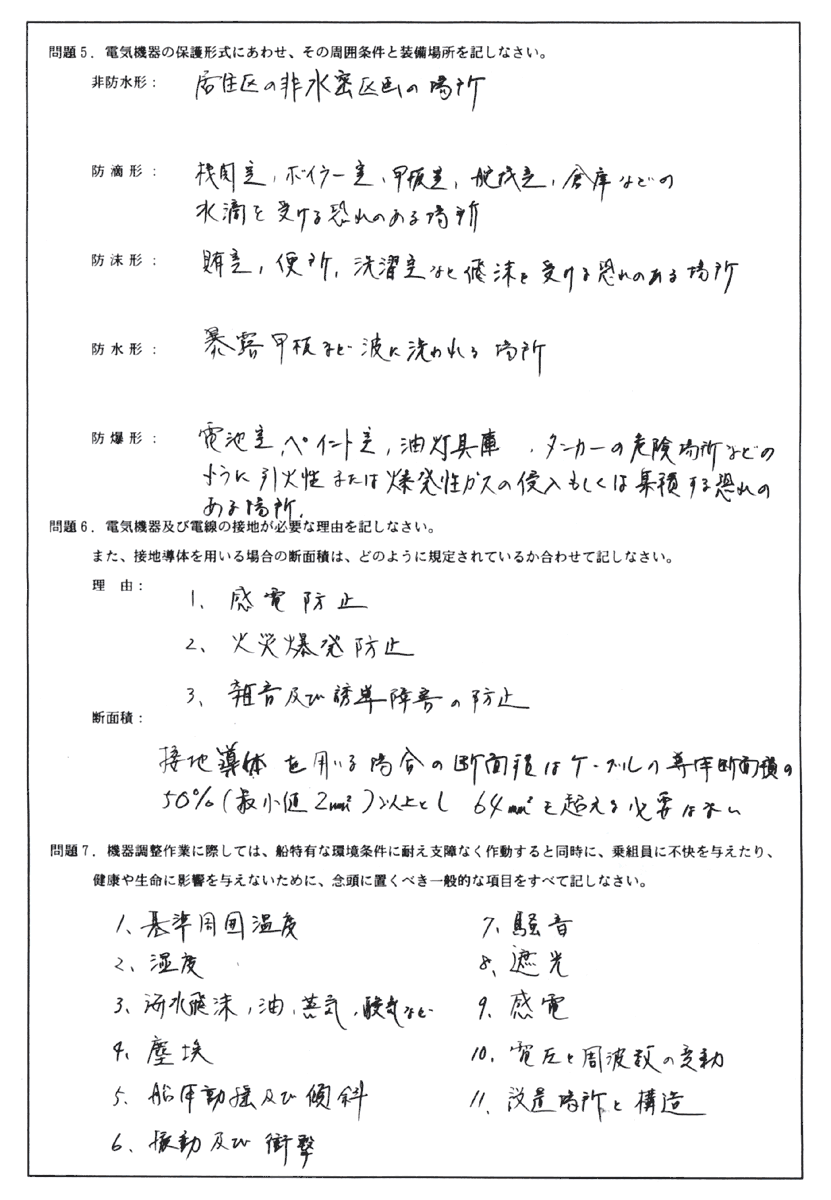 問題5. 電気機器の保護形式にあわせ、その周囲条件と装備場所を記しなさい。
非防水形： 居住区の非水密区画の場所
防滴形： 機関室, ボイラー室, 甲板室, 舵機室, 倉庫などの
水滴を受ける恐れのある場所
防沫形： 賄室, 便所, 洗濯室など飛沫を受ける恐れのある場所
防水形： 暴露甲板など波に洗われる場所
防爆形： 電池室, ペイント室, 油灯具庫, タンカーの危険場所などの
ように引火性または爆発性ガスの侵入もしくは集積する恐れの
ある場所.
問題6. 電気機器及び電線の接地が必要な理由を記しなさい。
また、接地導体を用いる場合の断面積は、どのように規定されているか合わせて記しなさい。
理由：
1、感電防止
2、火災爆発防止
3、雑音及び誘導障害の防止
断面積：
接地導体を用いる場合の断面積はケーブルの導体断面積の
50%(最小値2mm²)以上とし 64mm²を超える必要はない
問題7. 機器調整作業に際しては、船特有な環境条件に耐え支障なく作動すると同時に、乗組員に不快を与えたり、
健康や生命に影響を与えないために、念頭に置くべき一般的な項目をすべて記しなさい。
1、基準周囲温度
2、湿度
3、海水飛沫, 油, 蒸気, 酸気など
4、塵埃
5、船体動揺及び傾斜
6、振動及び衝撃
7、騒音
8、遮光
9、感電
10、電圧と周波数の変動
11、設置場所と構造